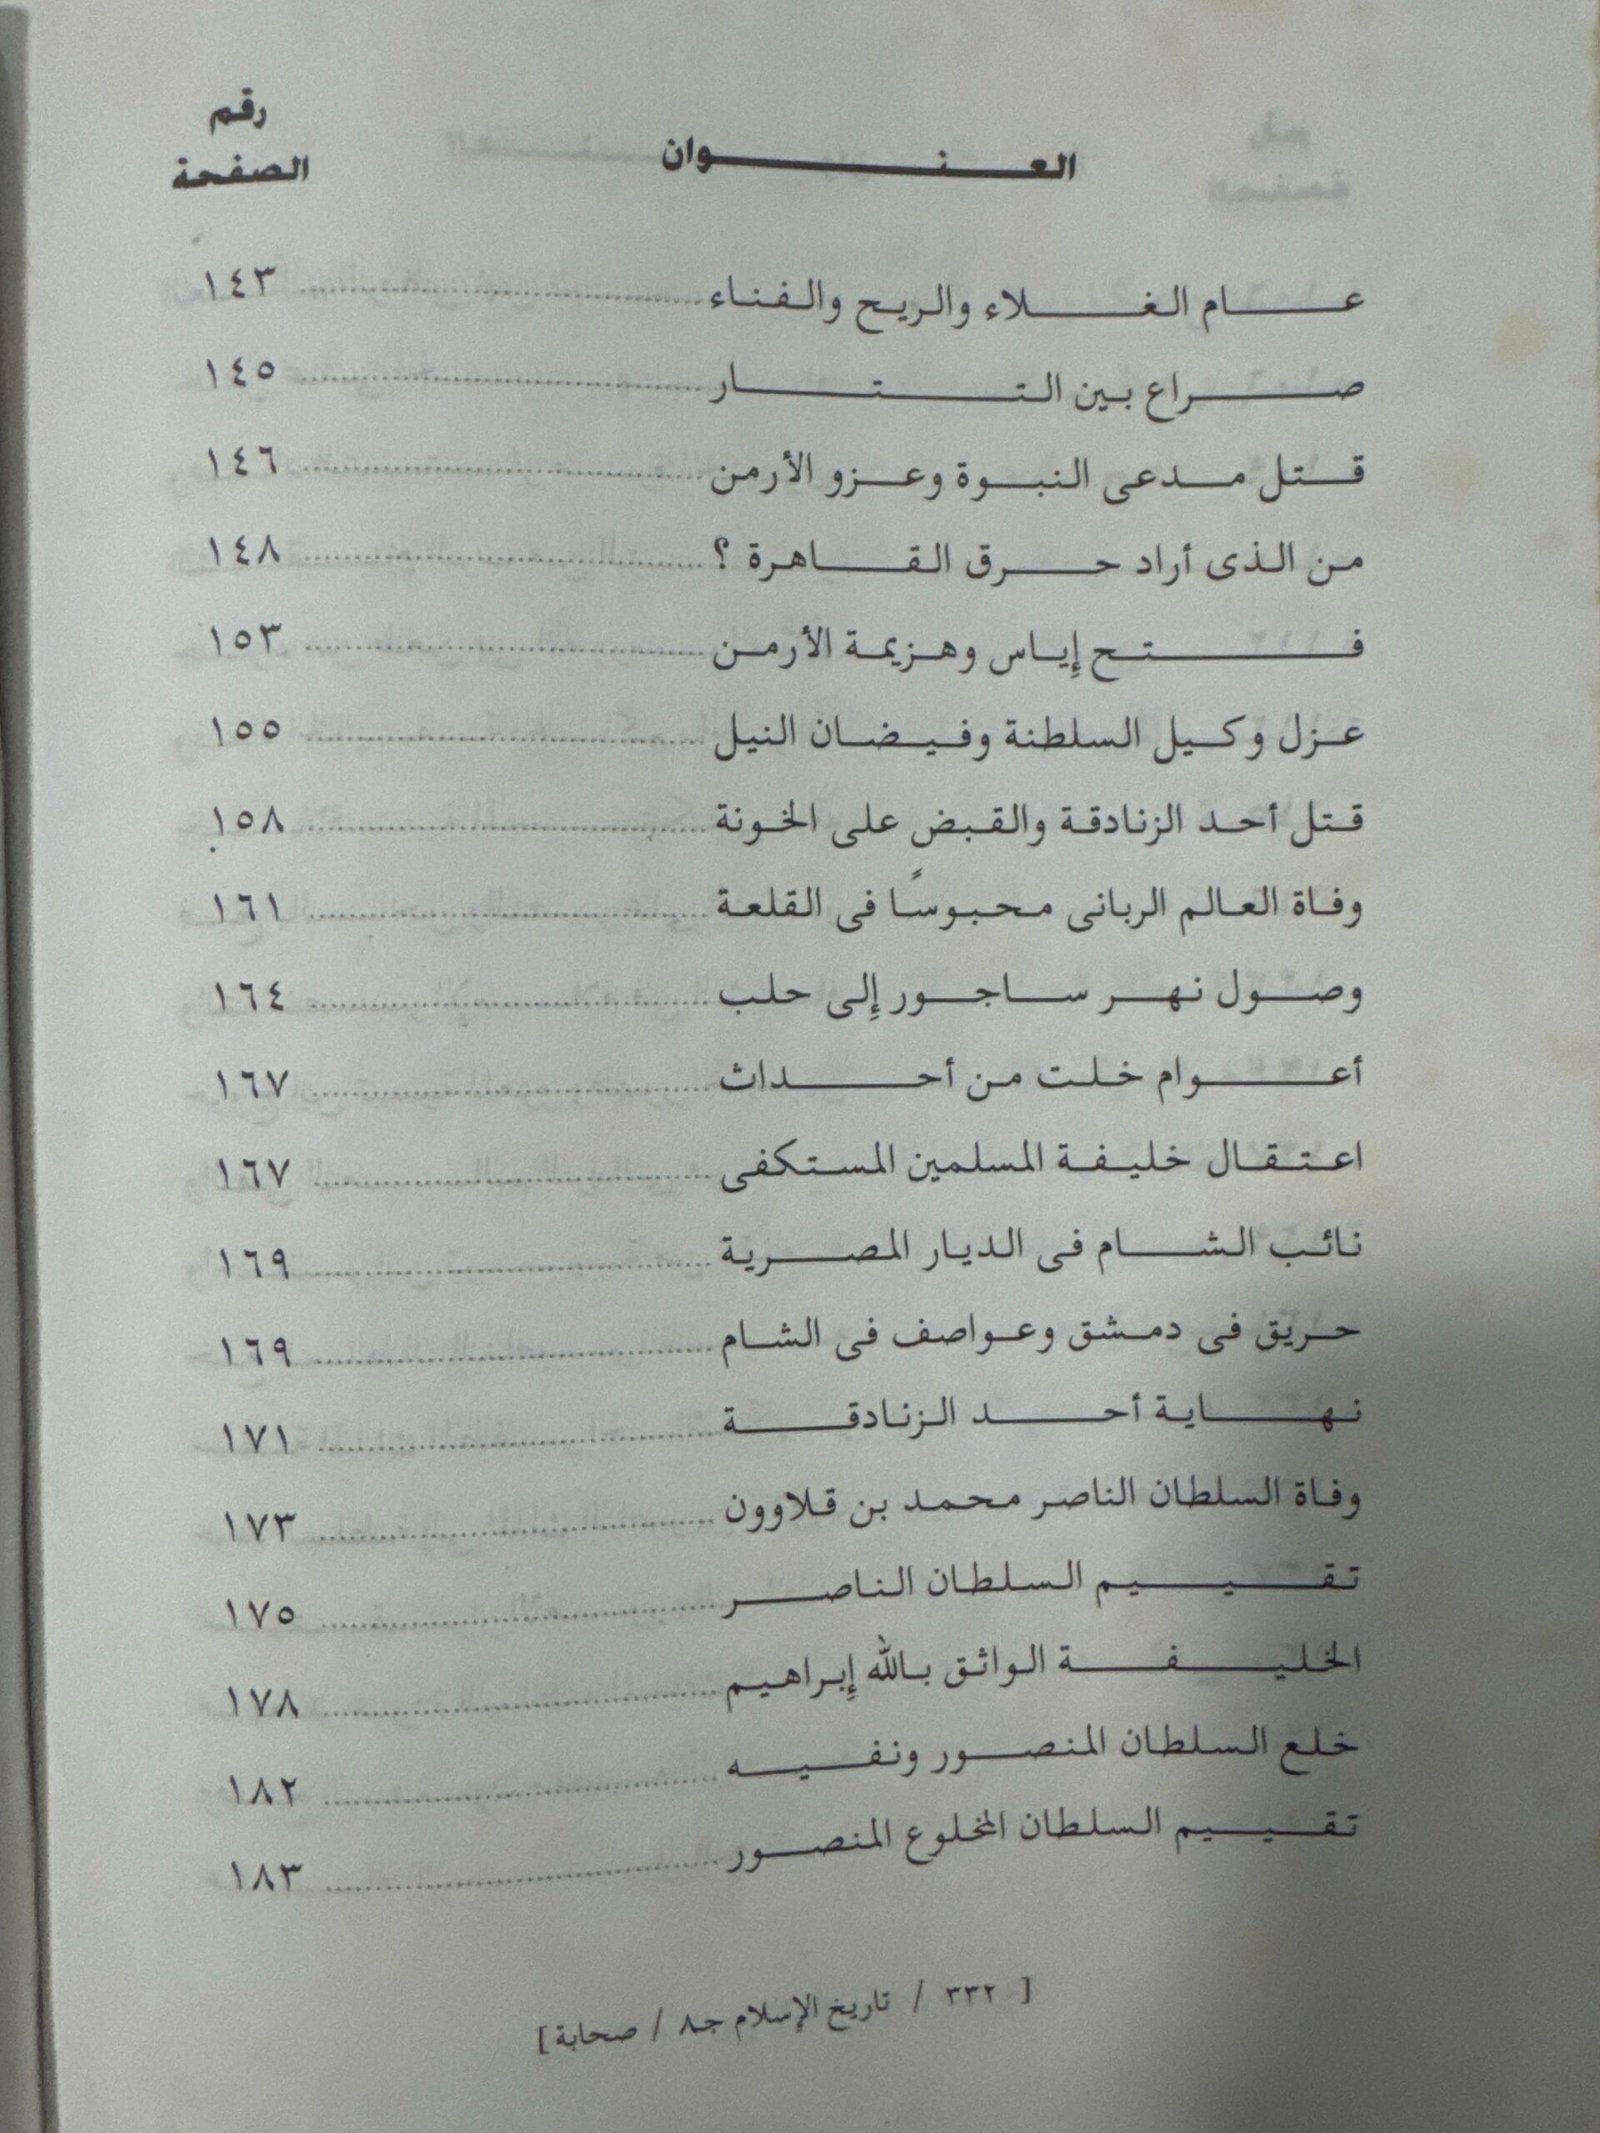 العنوان رقم الصفحة
عام الغلاء والريح والفناء ١٤٣
صراع بين التتار ١٤٥
قتل مدعى النبوة وعزو الأرمن ١٤٦
من الذى أراد حرق القاهرة ؟ ١٤٨
فتح إياس وهزيمة الأرمن ١٥٣
عزل وكيل السلطنة وفيضان النيل ١٥٥
قتل أحد الزنادقة والقبض على الخونة ١٥٨
وفاة العالم الربانى محبوسًا فى القلعة ١٦١
وصول نهر ساجور إلى حلب ١٦٤
أعوام خلت من أحداث ١٦٧
اعتقال خليفة المسلمين المستكفى ١٦٧
نائب الشام فى الديار المصرية ١٦٩
حريق فى دمشق وعواصف فى الشام ١٦٩
نهاية أحد الزنادقة ١٧١
وفاة السلطان الناصر محمد بن قلاوون ١٧٣
تقييم السلطان الناصر ١٧٥
الخليفة الواثق بالله إبراهيم ١٧٨
خلع السلطان المنصور ونفيه ١٨٢
تقييم السلطان المخلوع المنصور ١٨٣
[ ٣٣٢ / تاريخ الإسلام جـ٨ / صحابة ]